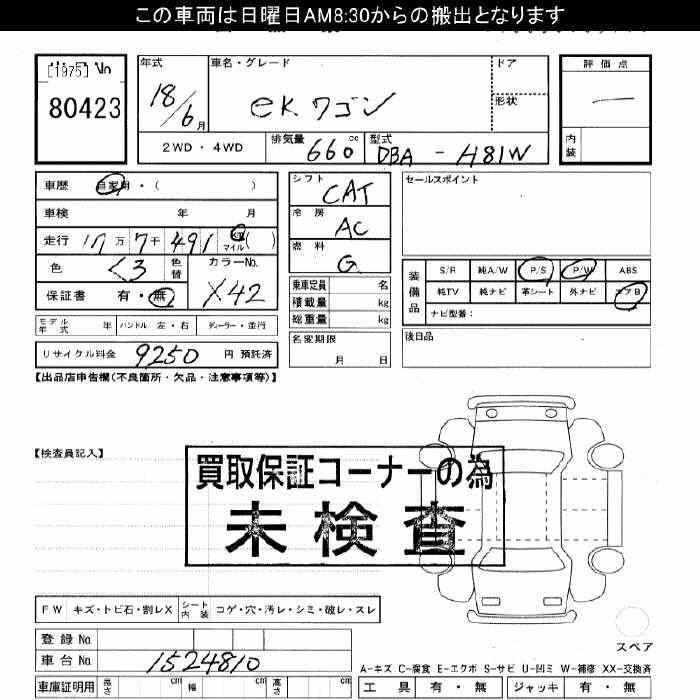 この車両は日曜日AM8:30からの搬出となります
[1975] No
80423
年式 18/6月
車名・グレード eKワゴン
ドア
形状
評価点 —
内装
2WD・4WD
排気量 660cc
型式 DBA-H81W
車歴 自家用・( )
車検 年 月
走行 17万7千491 km マイル( )
色 クロ 色替 カラーNo. X42
保証書 有・無
シフト CAT
冷房 AC
燃料 G
乗車定員 名
積載量 kg
総重量 kg
名変期限 月 日
セールスポイント
装備品 S/R 純A/W P/S P/W ABS
純TV 純ナビ 革シート 外ナビ エアB
ナビ型番:
後日品
モデル年式 年 ハンドル 左・右 ディーラー・並行
リサイクル料金 9250 円 預託済
【出品店申告欄(不良箇所・欠品・注意事項等)】
【検査員記入】
買取保証コーナーの為
未検査
FW キズ・トビ石・割レX シート内装 コゲ・穴・汚レ・シミ・破レ・スレ
登録No.
車台No. 1524810
車庫証明用 長さ cm 幅 cm 高さ cm
スペア
A-キズ C-腐食 E-エクボ S-サビ U-凹ミ W-補修 XX-交換済
工具 有・無 ジャッキ 有・無